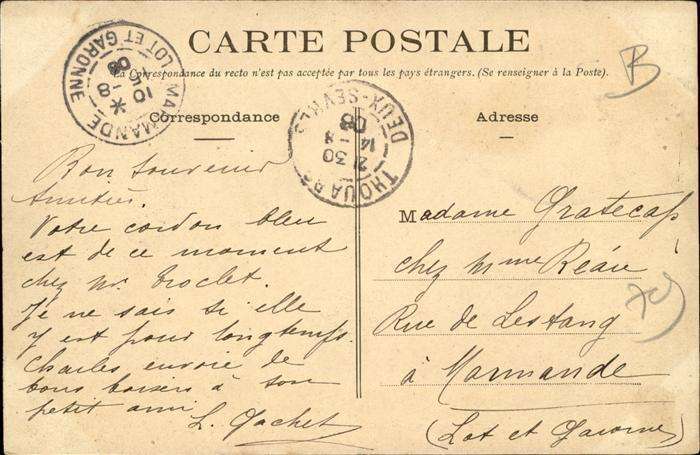 CARTE POSTALE
La Correspondance du recto n'est pas acceptée par tous les pays étrangers. (Se renseigner à la Poste).
Correspondance
Adresse
MARMANDE
LOT ET GARONNE
THOUARS
DEUX-SÈVRES
21 30
14 -8
08
B
Bon souvenir
Amitiés.
Votre cordon bleu
est de ce moment
chez Mr. Troclet.
Je ne sais si elle
y est pour longtemps.
Charles envoie de
bons baisers à son
petit ami
L. Gachet
Madame Gratecap
chez Mme
Rue de Lestang
à Marmande
(Lot et Garonne)